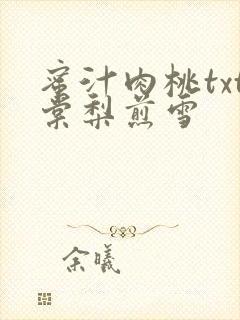 蜜汁肉桃txt
棠梨煎雪
余曦